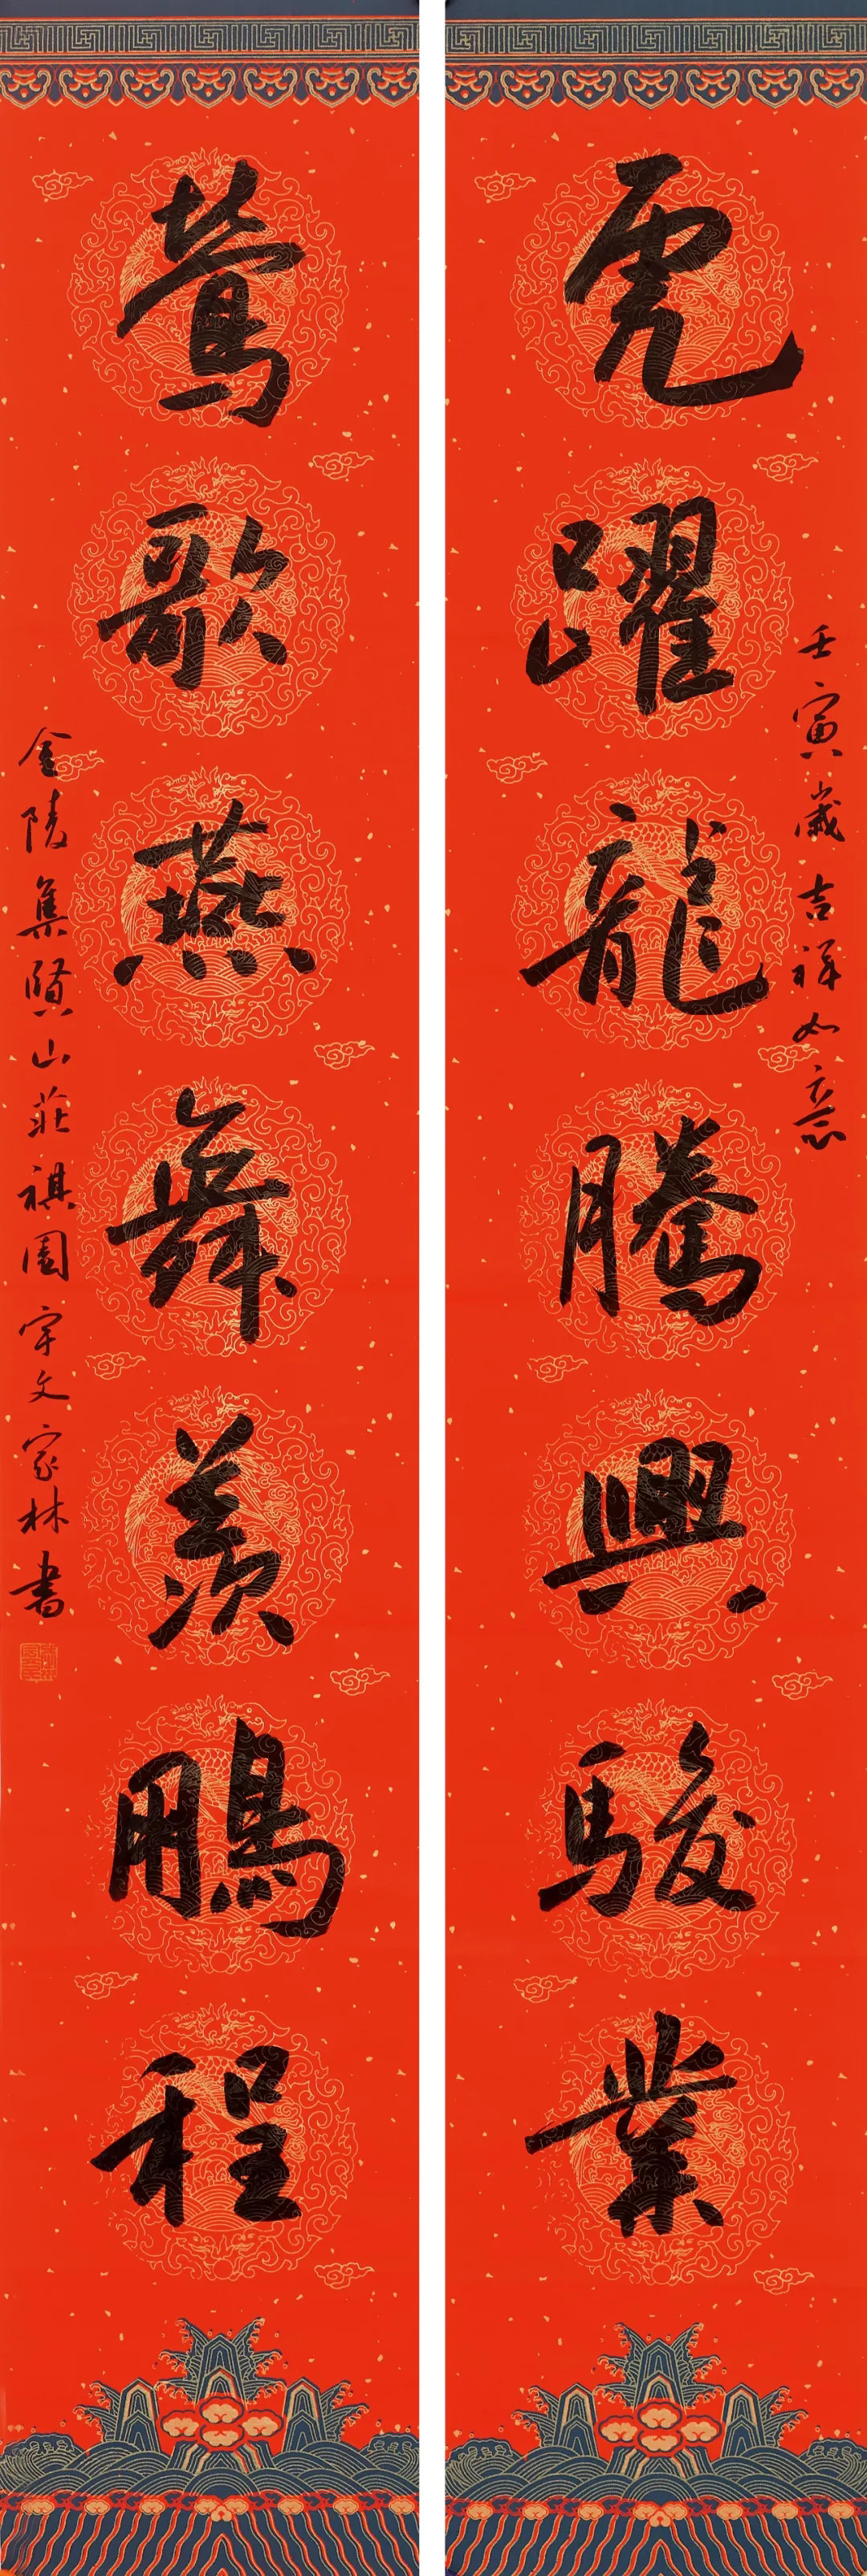 壬寅歲吉祥如意
虎躍龍騰興駿業
鶯歌燕舞羨鵬程
金陵集賢山莊祺園宇文家林書